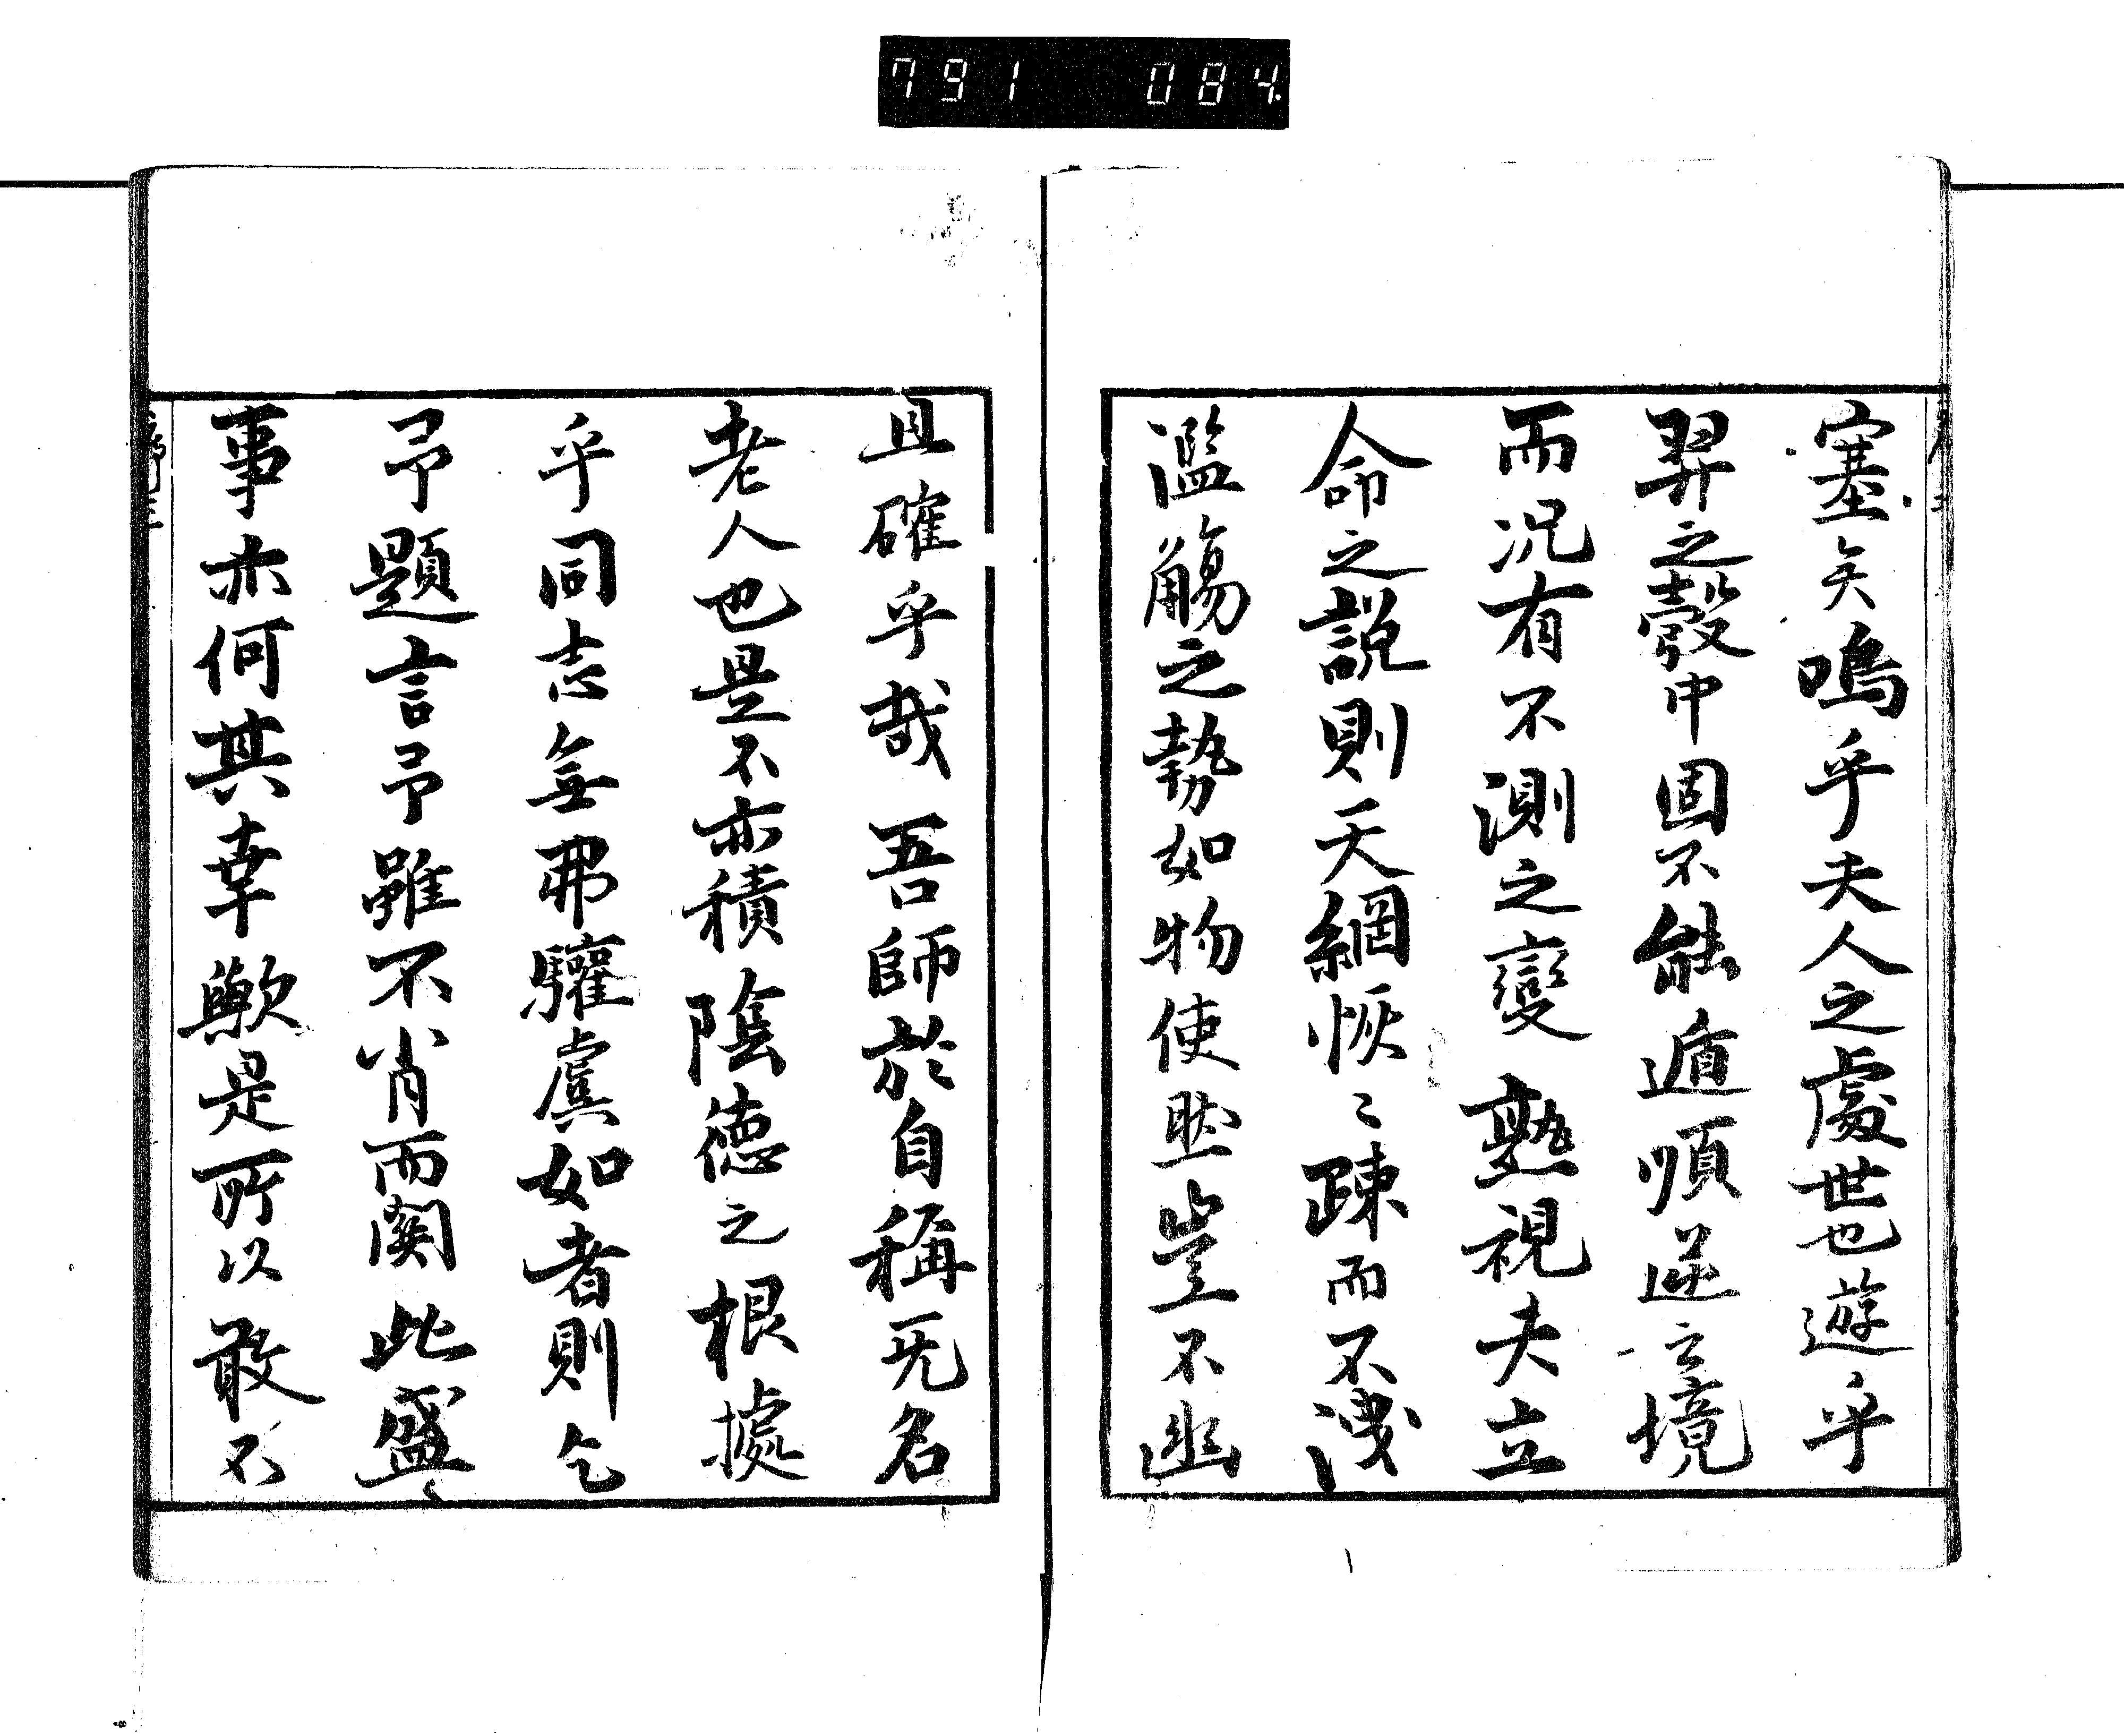 791 084
塞矣嗚乎夫人之處世也遊乎
羿之彀中固不能遁順逆之境
而況有不測之變熟視夫立
命之說則天網恢〻疎而不洩
濫觴之勢如物使然豈不幽
且確乎哉吾師於自稱无名
老人也是不亦積陰德之根據
乎同志無弗驩虞如者則乞
予題言予雖不肖而關此盛
事亦何其幸歟是所以敢不